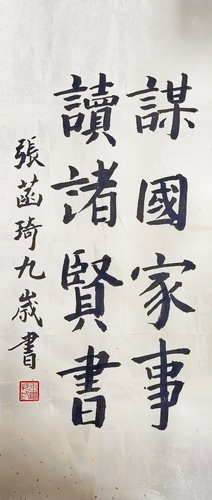 謀國家事
讀諸賢書
張菡琦九歲書